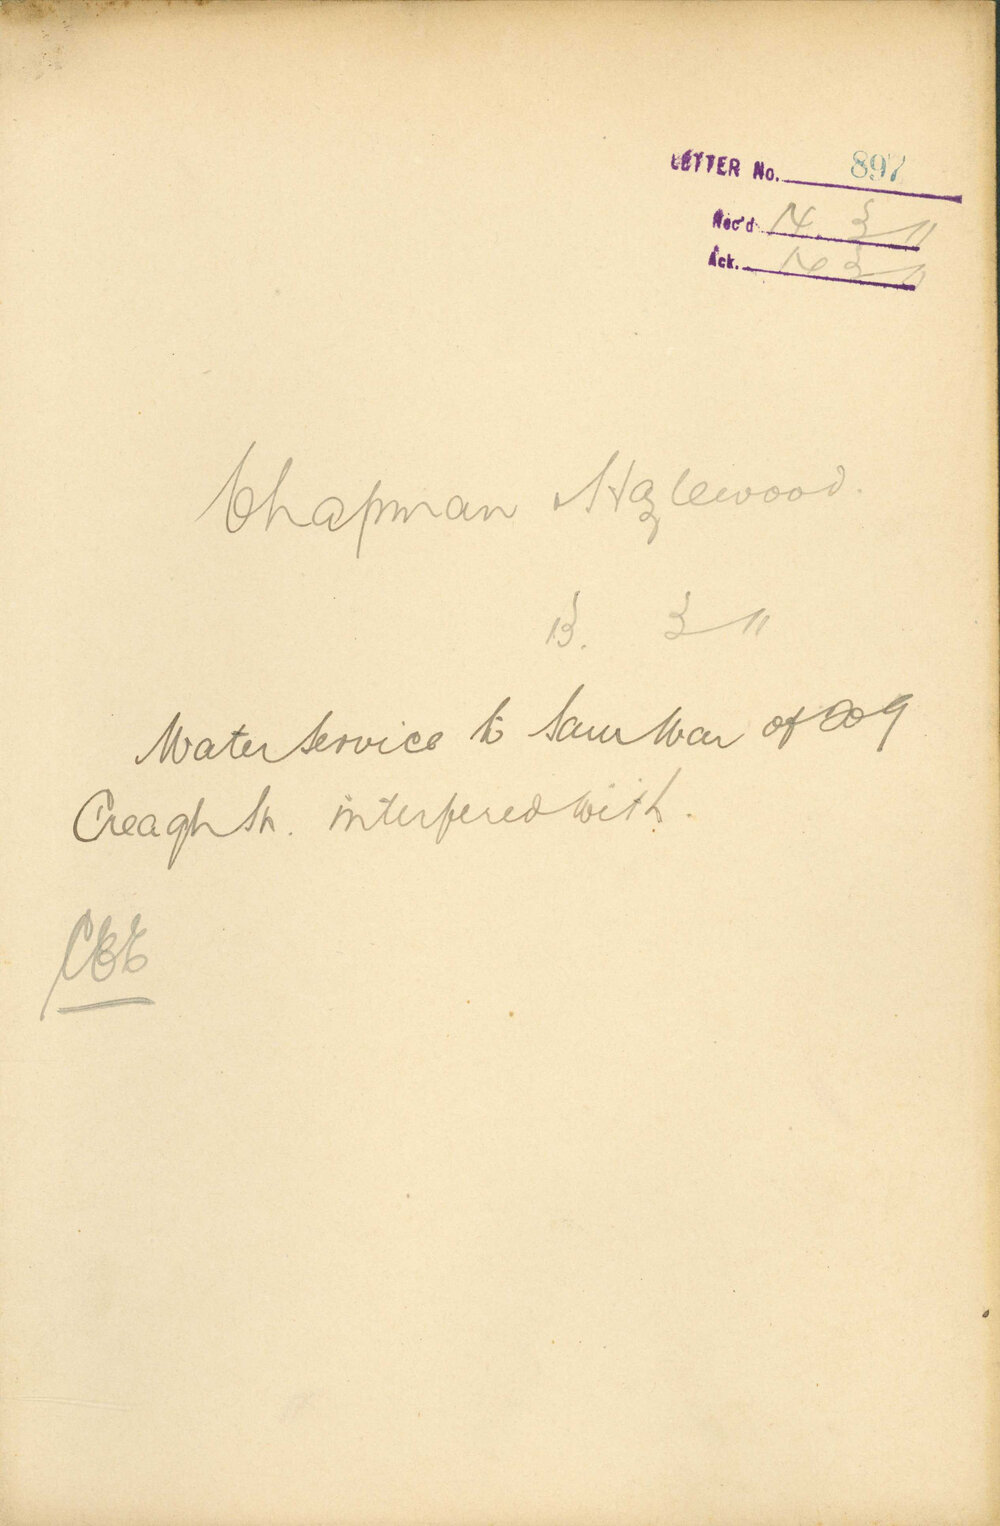 LETTER No. 897
Rec'd 14. 3 11
Ack. 14 3 11
Chapman Hazlewood.
13. 3 11
Water Service to
Creagh St. interfered with.